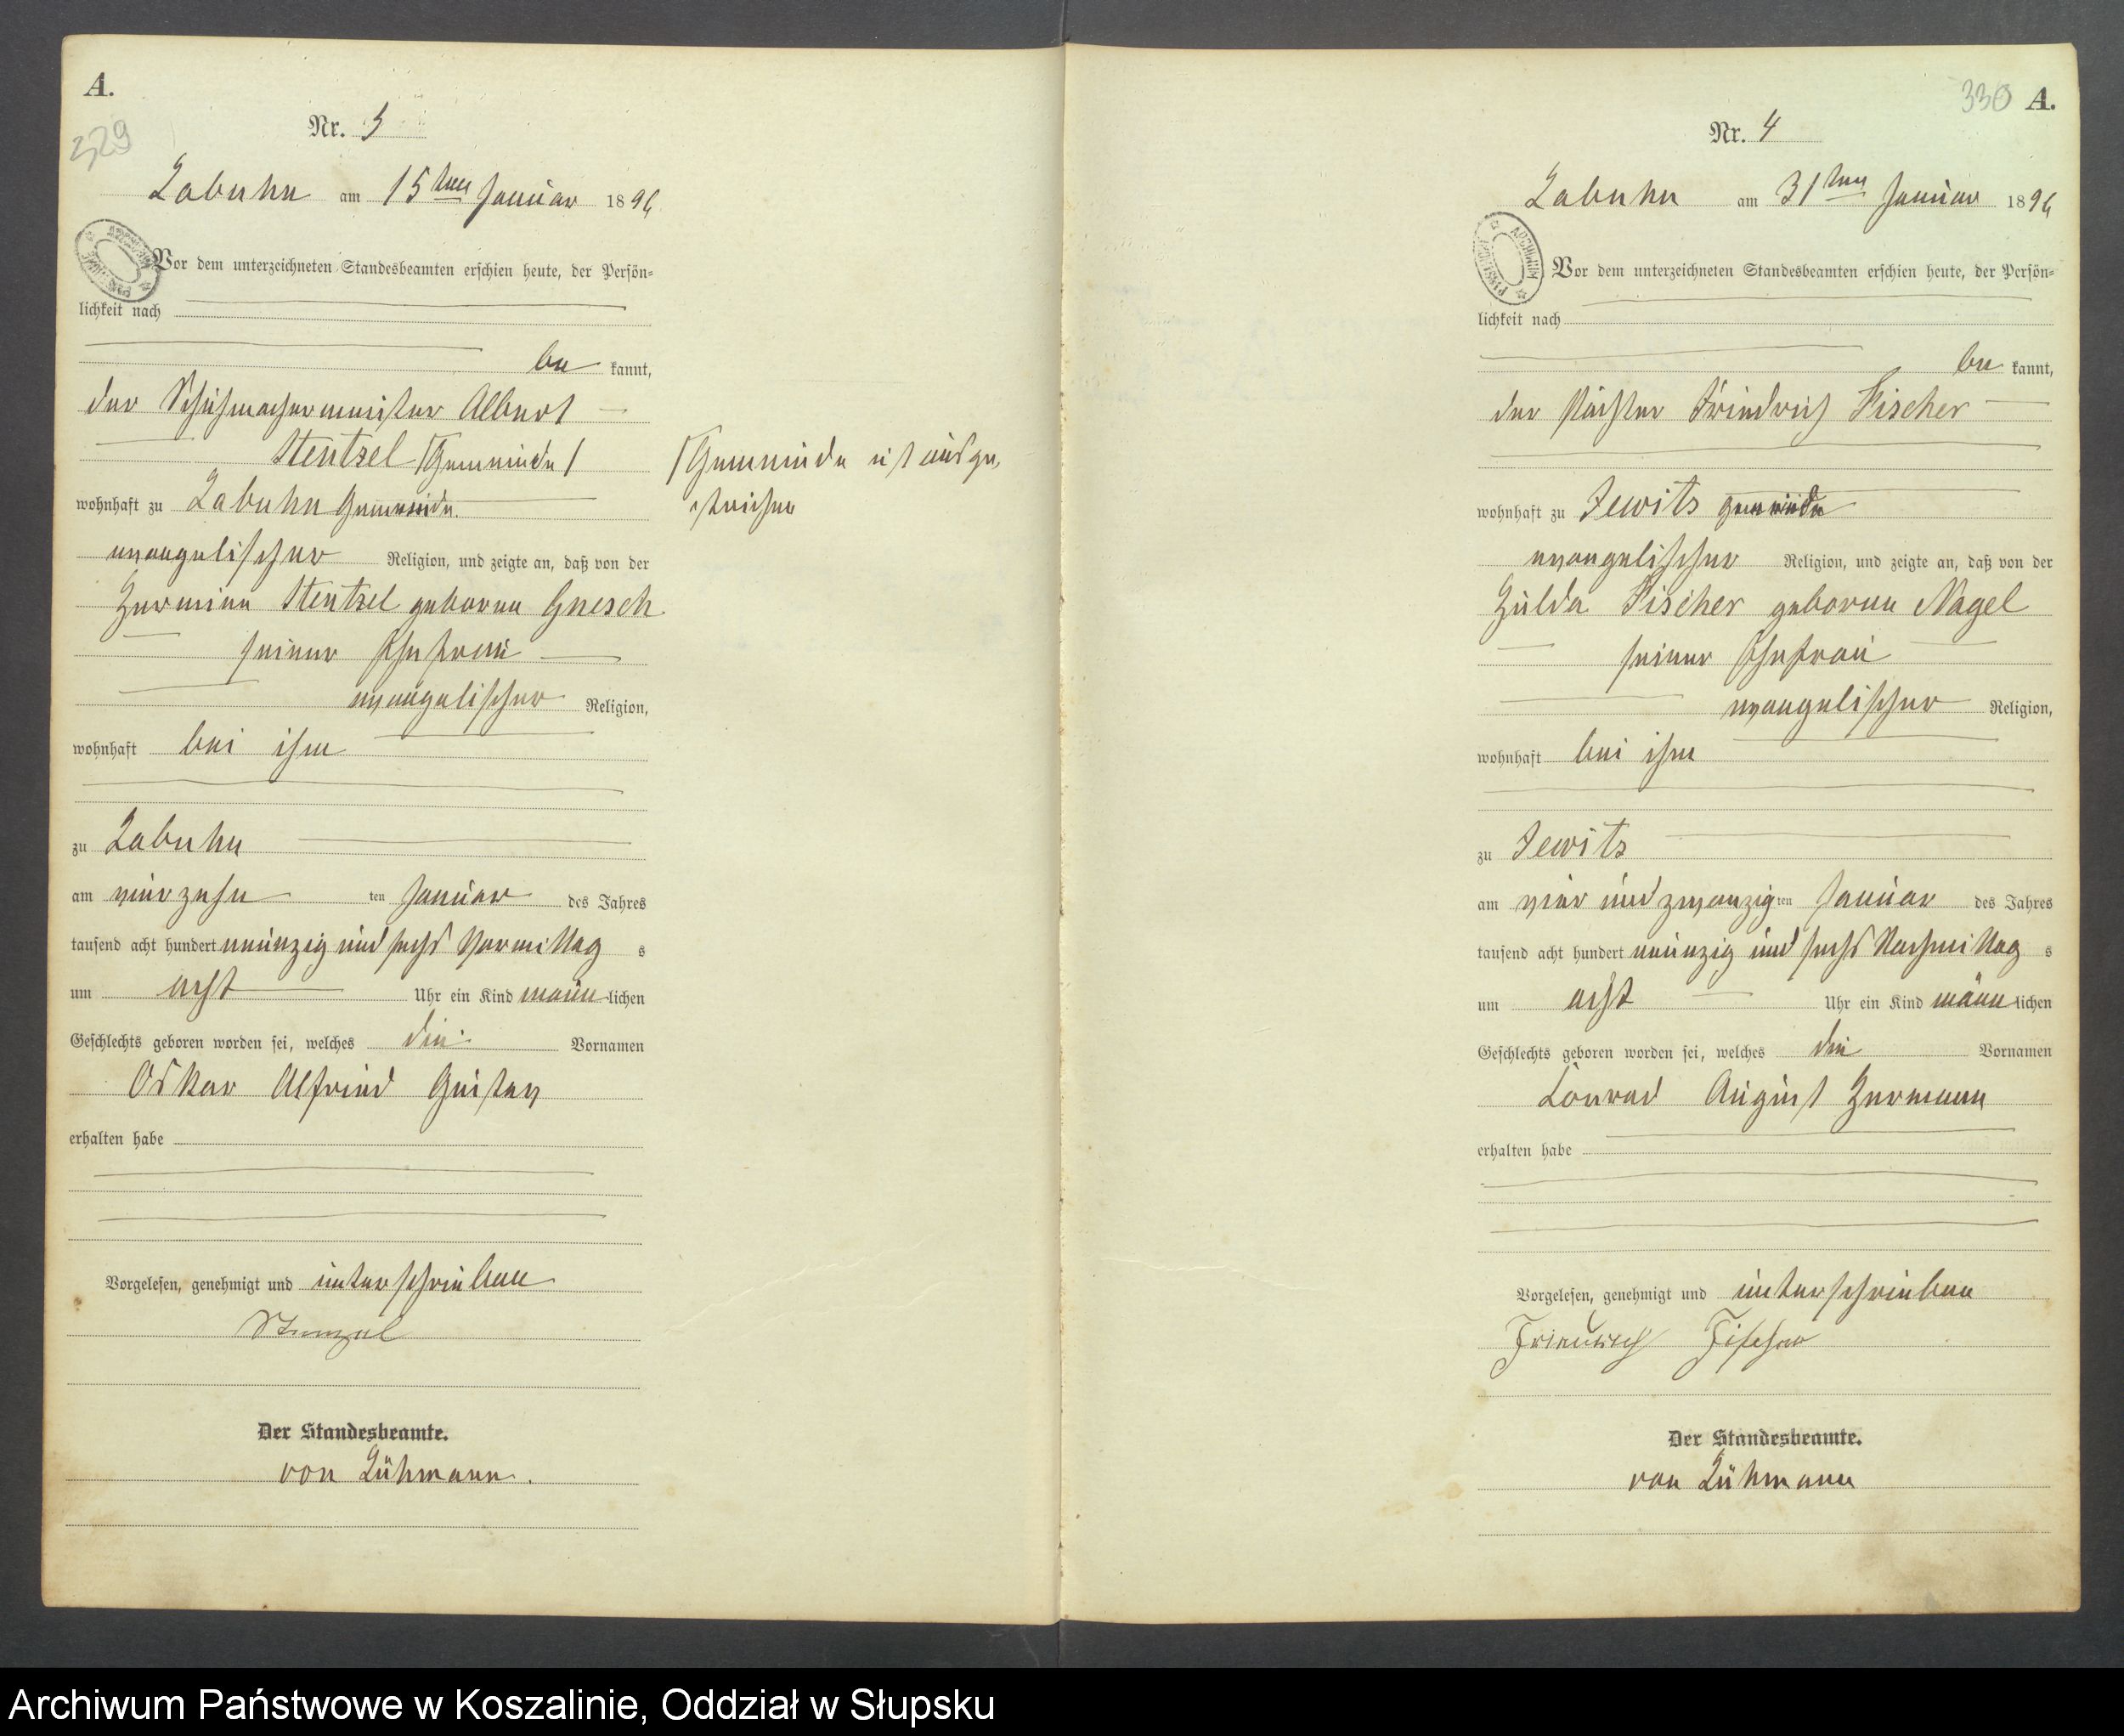 A.
329
Nr. 3
Labuhn am 15ten Januar 1896
Vor dem unterzeichneten Standesbeamten erschien heute, der Persön=
lichkeit nach
be kannt,
der Schuhmachermeister Albert
Stentzel /Gemeinde/
wohnhaft zu Labuhn Gemeinde
evangelischer Religion, und zeigte an, daß von der
Hermine Stentzel geborene Gnesch
seiner Ehefrau
evangelischer Religion,
wohnhaft bei ihm
zu Labuhn
am vierzehn ten Januar des Jahres
tausend acht hundert neunzig und sechs Vormittag s
um acht Uhr ein Kind männ lichen
Geschlechts geboren worden sei, welches die Vornamen
Oskar Alfried Gustav
erhalten habe
Vorgelesen, genehmigt und unterschrieben
Stenzel
Der Standesbeamte.
von Lühmann.
/Gemeinde ist ausge,
strichen
330 A.
Nr. 4
Labuhn am 31ten Januar 1896
ARCHIWUM
Vor dem unterzeichneten Standesbeamten erschien heute, der Persön=
lichkeit nach
be kannt,
der Pächter Friedrich Fischer
wohnhaft zu Jewits Gemeinde
evangelischer Religion, und zeigte an, daß von der
Hulda Fischer geborene Nagel
seiner Ehefrau
evangelischer Religion,
wohnhaft bei ihm
zu Jewits
am vier und zwanzig ten Januar des Jahres
tausend acht hundert neunzig und sechs Nachmittag s
um acht Uhr ein Kind männ lichen
Geschlechts geboren worden sei, welches die Vornamen
Conrad August Hermann
erhalten habe
Vorgelesen, genehmigt und unterschrieben
Friedrich Fischer
Der Standesbeamte.
von Lühmann
Archiwum Państwowe w Koszalinie, Oddział w Słupsku